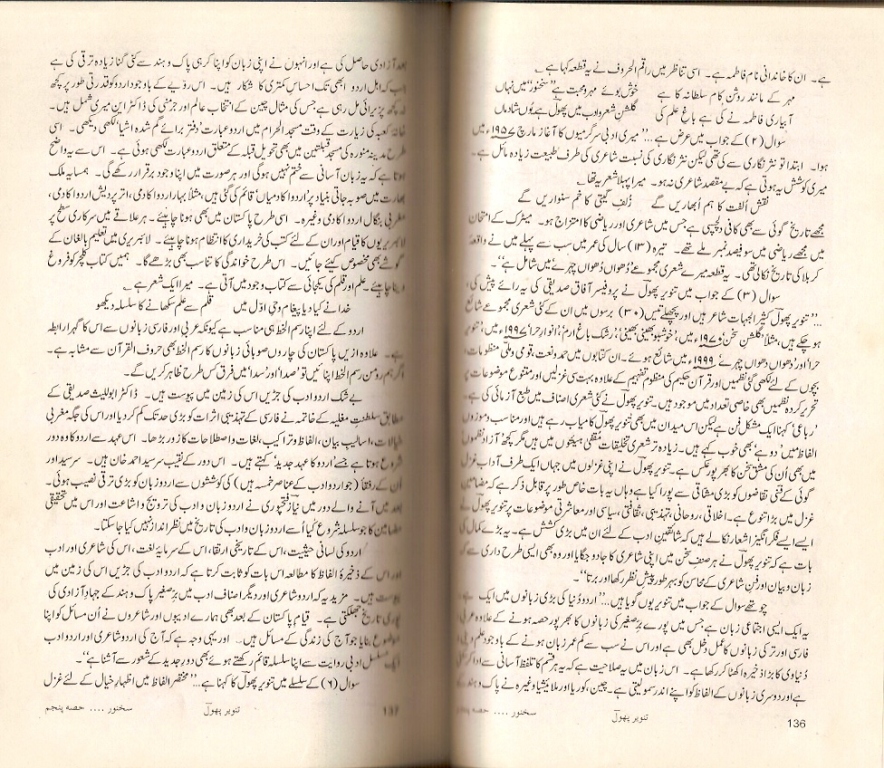 ہے۔ ان کا خاندانی نام فاطمہ ہے۔ اسی تناظر میں راقم الحروف نے یہ قطعہ کہا ہے
مہر کے مانند روشن کام سلطانہ کا ہے خوش بوئے مہر و محبت ہے "سخنور" میں نہاں
آبیاری فاطمہ نے کی ہے باغِ علم کی گلشنِ شعر و ادب میں پھولؔ ہے یوں شادماں
سوال (۲) کے جواب میں عرض ہے..."میری ادبی سرگرمیوں کا آغاز مارچ ۱۹۵۷ء میں
ہوا۔ ابتدا تو نثر نگاری سے کی تھی لیکن نثر نگاری کی نسبت شاعری کی طرف طبیعت زیادہ مائل ہے۔
میری کوشش یہ ہوتی ہے کہ بے مقصد شاعری نہ ہو۔ میرا پہلا شعر یہ تھا
نقشِ الفت کا ہم ابھاریں گے زلفِ گیتی کا خم سنواریں گے
مجھے تاریخ گوئی سے بھی کافی دلچسپی ہے جس میں شاعری اور ریاضی کا امتزاج ہو۔ میٹرک کے امتحان
میں مجھے ریاضی میں سو فیصد نمبر ملے تھے۔ تیرہ (۱۳) سال کی عمر میں سب سے پہلے میں نے واقعۂ
کربلا کی تاریخ نکالی تھی۔ یہ قطعہ میرے شعری مجموعے 'دھواں دھواں چہرے' میں شامل ہے"۔
سوال (۳) کے جواب میں تنویر پھولؔ نے پروفیسر آفاق صدیقی کی یہ رائے پیش کی،
..."تنویر پھولؔ کثیر الجہات شاعر ہیں اور پچھلے تیس (۳۰) برسوں میں ان کے کئی شعری مجموعے شائع
ہو چکے ہیں، مثلاً 'گلشنِ سخن' ۱۹۷۰ء میں، 'خوشبو بھینی بھینی'، 'رشکِ باغِ ارم'، 'انوارِ حرا' ۱۹۹۷ء میں، 'تنویرِ
حرا' اور 'دھواں دھواں چہرے' ۱۹۹۹ء میں شائع ہوئے۔ ان کتابوں میں حمد و نعت، قومی و ملی منظومات،
بچوں کے لئے لکھی گئی نظمیں اور قرآنِ حکیم کی منظوم تفہیم کے علاوہ بہت سی غزلیں اور متنوع موضوعات پر
تحریر کردہ نظمیں بھی خاصی تعداد میں موجود ہیں۔ تنویر پھولؔ نے کئی شعری اصناف میں طبع آزمائی کی ہے۔
'رباعی' کہنا ایک مشکل فن ہے لیکن اس میدان میں بھی تنویر پھولؔ کامیاب رہے ہیں اور مناسب و موزوں
الفاظ میں 'دوہے' بھی خوب کہے ہیں۔ زیادہ تر شعری تخلیقات مقفیٰ ہیئتوں میں ہیں مگر کچھ آزاد نظموں
میں بھی ان کی مشقِ سخن کا بھرپور عکس ہے۔ تنویر پھولؔ نے اپنی غزلوں میں جہاں ایک طرف آدابِ غزل
گوئی کے فنی تقاضوں کو بڑی مشاقی سے پورا کیا ہے وہاں یہ بات خاص طور پر قابلِ ذکر ہے کہ مضامینِ
غزل میں بڑا تنوع ہے۔ اخلاقی، روحانی، تہذیبی، ثقافتی، سیاسی اور معاشرتی موضوعات پر تنویر پھولؔ نے
ایسے ایسے فکر انگیز اشعار نکالے ہیں کہ شائقینِ ادب کے لئے ان میں بڑی کشش ہے۔ یہ بڑے کمال کی
بات ہے کہ تنویر پھولؔ نے ہر صنفِ سخن میں اپنی شاعری کا جادو جگایا اور وہ بھی ایسی طرح داری سے کہ
زبان و بیان اور فنِ شاعری کے محاسن کو بہر طور پیشِ نظر رکھا اور برتا"۔
چوتھے سوال کے جواب میں تنویر یوں گویا ہیں..."اردو دنیا کی بڑی زبانوں میں ایک ہے
یہ ایک ایسی اجتماعی زبان ہے جس میں پورے برِصغیر کی زبانوں کا بھرپور حصہ ہونے کے علاوہ عربی،
فارسی اور ترکی زبانوں کا مکمل دخل بھی ہے اور اس نے سب سے کم عمر زبان ہونے کے باوجود علومِ دینی و
دنیاوی کا بڑا ذخیرہ اکٹھا کر رکھا ہے۔ اس زبان میں یہ صلاحیت ہے کہ یہ ہر قسم کا تلفظ آسانی سے ادا کر
ہے اور دوسری زبانوں کے الفاظ کو اپنے اندر سمو لیتی ہے۔ چین، کوریا اور ملائیشیا وغیرہ نے پاک و ہند کے
سخنور .... حصہ پنجم تنویر پھولؔ 136
بعد آزادی حاصل کی ہے اور انہوں نے اپنی زبان کو اپنا کر ہی پاک و ہند سے کئی گنا زیادہ ترقی کی ہے
جب کہ اہلِ اردو ابھی تک احساسِ کمتری کا شکار ہیں۔ اس رویّے کے باوجود اردو کو قدرتی طور پر کچھ
نہ کچھ پزیرائی مل رہی ہے جس کی مثال چین کے انتخاب عالم اور جرمنی کی ڈاکٹر این میری شمل ہیں۔
خانۂ کعبہ کی زیارت کے وقت مسجد الحرام میں اردو عبارت 'دفتر برائے گم شدہ اشیا' لکھی دیکھی۔ اسی
طرح مدینہ منورہ کی مسجد قبلتین میں بھی تحویلِ قبلہ کے متعلق اردو عبارت لکھی ہوئی ہے۔ اس سے یہ واضح
ہوتا ہے کہ یہ زبان آسانی سے ختم نہیں ہو گی اور ہر صورت میں اپنا وجود برقرار رکھے گی۔ ہمسایہ ملک
بھارت میں صوبہ جاتی بنیاد پر 'اردو اکادمیاں' قائم کی گئی ہیں، مثلاً بہار اردو اکادمی، اتر پردیش اردو اکادمی،
مغربی بنگال اردو اکادمی وغیرہ۔ اسی طرح پاکستان میں بھی ہونا چاہیئے۔ ہر علاقے میں سرکاری سطح پر
لائبریریوں کا قیام اور ان کے لئے کتب کی خریداری کا انتظام ہونا چاہیئے۔ لائبریری میں تعلیمِ بالغان کے
گوشے بھی مخصوص کیئے جائیں۔ اس طرح خواندگی کا تناسب بھی بڑھے گا۔ ہمیں کتاب کلچر کو فروغ
دینا چاہیئے۔ علم اور قلم کی یکجائی سے کتاب وجود میں آتی ہے۔ میرا ایک شعر ہے
خدا نے کیا دیا پیغام وحیِ اوّل میں قلم سے علم سکھانے کا سلسلہ دیکھو
اردو کے لئے اپنا رسم الخط ہی مناسب ہے کیونکہ عربی اور فارسی زبانوں سے اس کا گہرا رابطہ
ہے۔ علاوہ ازیں پاکستان کی چاروں صوبائی زبانوں کا رسم الخط بھی حروفِ القرآن سے مشابہ ہے۔
اگر ہم رومن رسم الخط اپنائیں تو 'صدا' اور 'سدا' میں فرق کس طرح ظاہر کریں گے۔
بے شک اردو ادب کی جڑیں اس کی زمین میں پیوست ہیں۔ ڈاکٹر ابواللیث صدیقی کے
مطابق سلطنتِ مغلیہ کے خاتمہ نے فارسی کے تہذیبی اثرات کو بڑی حد تک کم کر دیا اور اس کی جگہ مغربی
خیالات، اسالیبِ بیان، الفاظ و تراکیب، لغات و اصطلاحات کا زور بڑھا۔ اس عہد سے اردو کا وہ دور
شروع ہوتا ہے جسے 'اردو کا عہدِ جدید' کہتے ہیں۔ اس دور کے نقیب سر سید احمد خان ہیں۔ سر سید اور
اُن کے رفقا (جو اردو ادب کے عناصرِ خمسہ ہیں) کی کوششوں سے اردو زبان کو بڑی ترقی نصیب ہوئی۔
بعد میں آنے والے دور میں نیاز فتحپوری نے اردو زبان و ادب کی ترویج و اشاعت اور اس میں تحقیقی
مضامین کا جو سلسلہ شروع کیا اُسے اردو زبان و ادب کی تاریخ میں نظر انداز نہیں کیا جا سکتا۔
اردو کی لسانی حیثیت، اس کے تاریخی ارتقا، اس کے سرمایۂ لغت، اس کی شاعری اور ادب
اور اس کے ذخیرۂ الفاظ کا مطالعہ اس بات کو ثابت کرتا ہے کہ اردو ادب کی جڑیں اس کی زمین میں
پیوست ہیں۔ مزید یہ کہ اردو شاعری اور دیگر اصنافِ ادب میں برِصغیر پاک و ہند کے جہادِ آزادی کی
پوری تاریخ جھلکتی ہے۔ قیامِ پاکستان کے بعد بھی ہمارے ادیبوں اور شاعروں نے اُن مسائل کو اپنا
موضوع بنایا جو آج کی زندگی کے مسائل ہیں... اور یہی وجہ ہے کہ آج کی اردو شاعری اور اردو ادب
ایک مسلسل ادبی روایت سے اپنا سلسلہ قائم رکھتے ہوئے بھی دورِ جدید کے شعور سے آشنا ہے"۔
سوال (۶) کے سلسلے میں تنویر پھولؔ کا کہنا ہے..."مختصر الفاظ میں اظہارِ خیال کے لئے غزل
سخنور .... حصہ پنجم تنویر پھولؔ 137